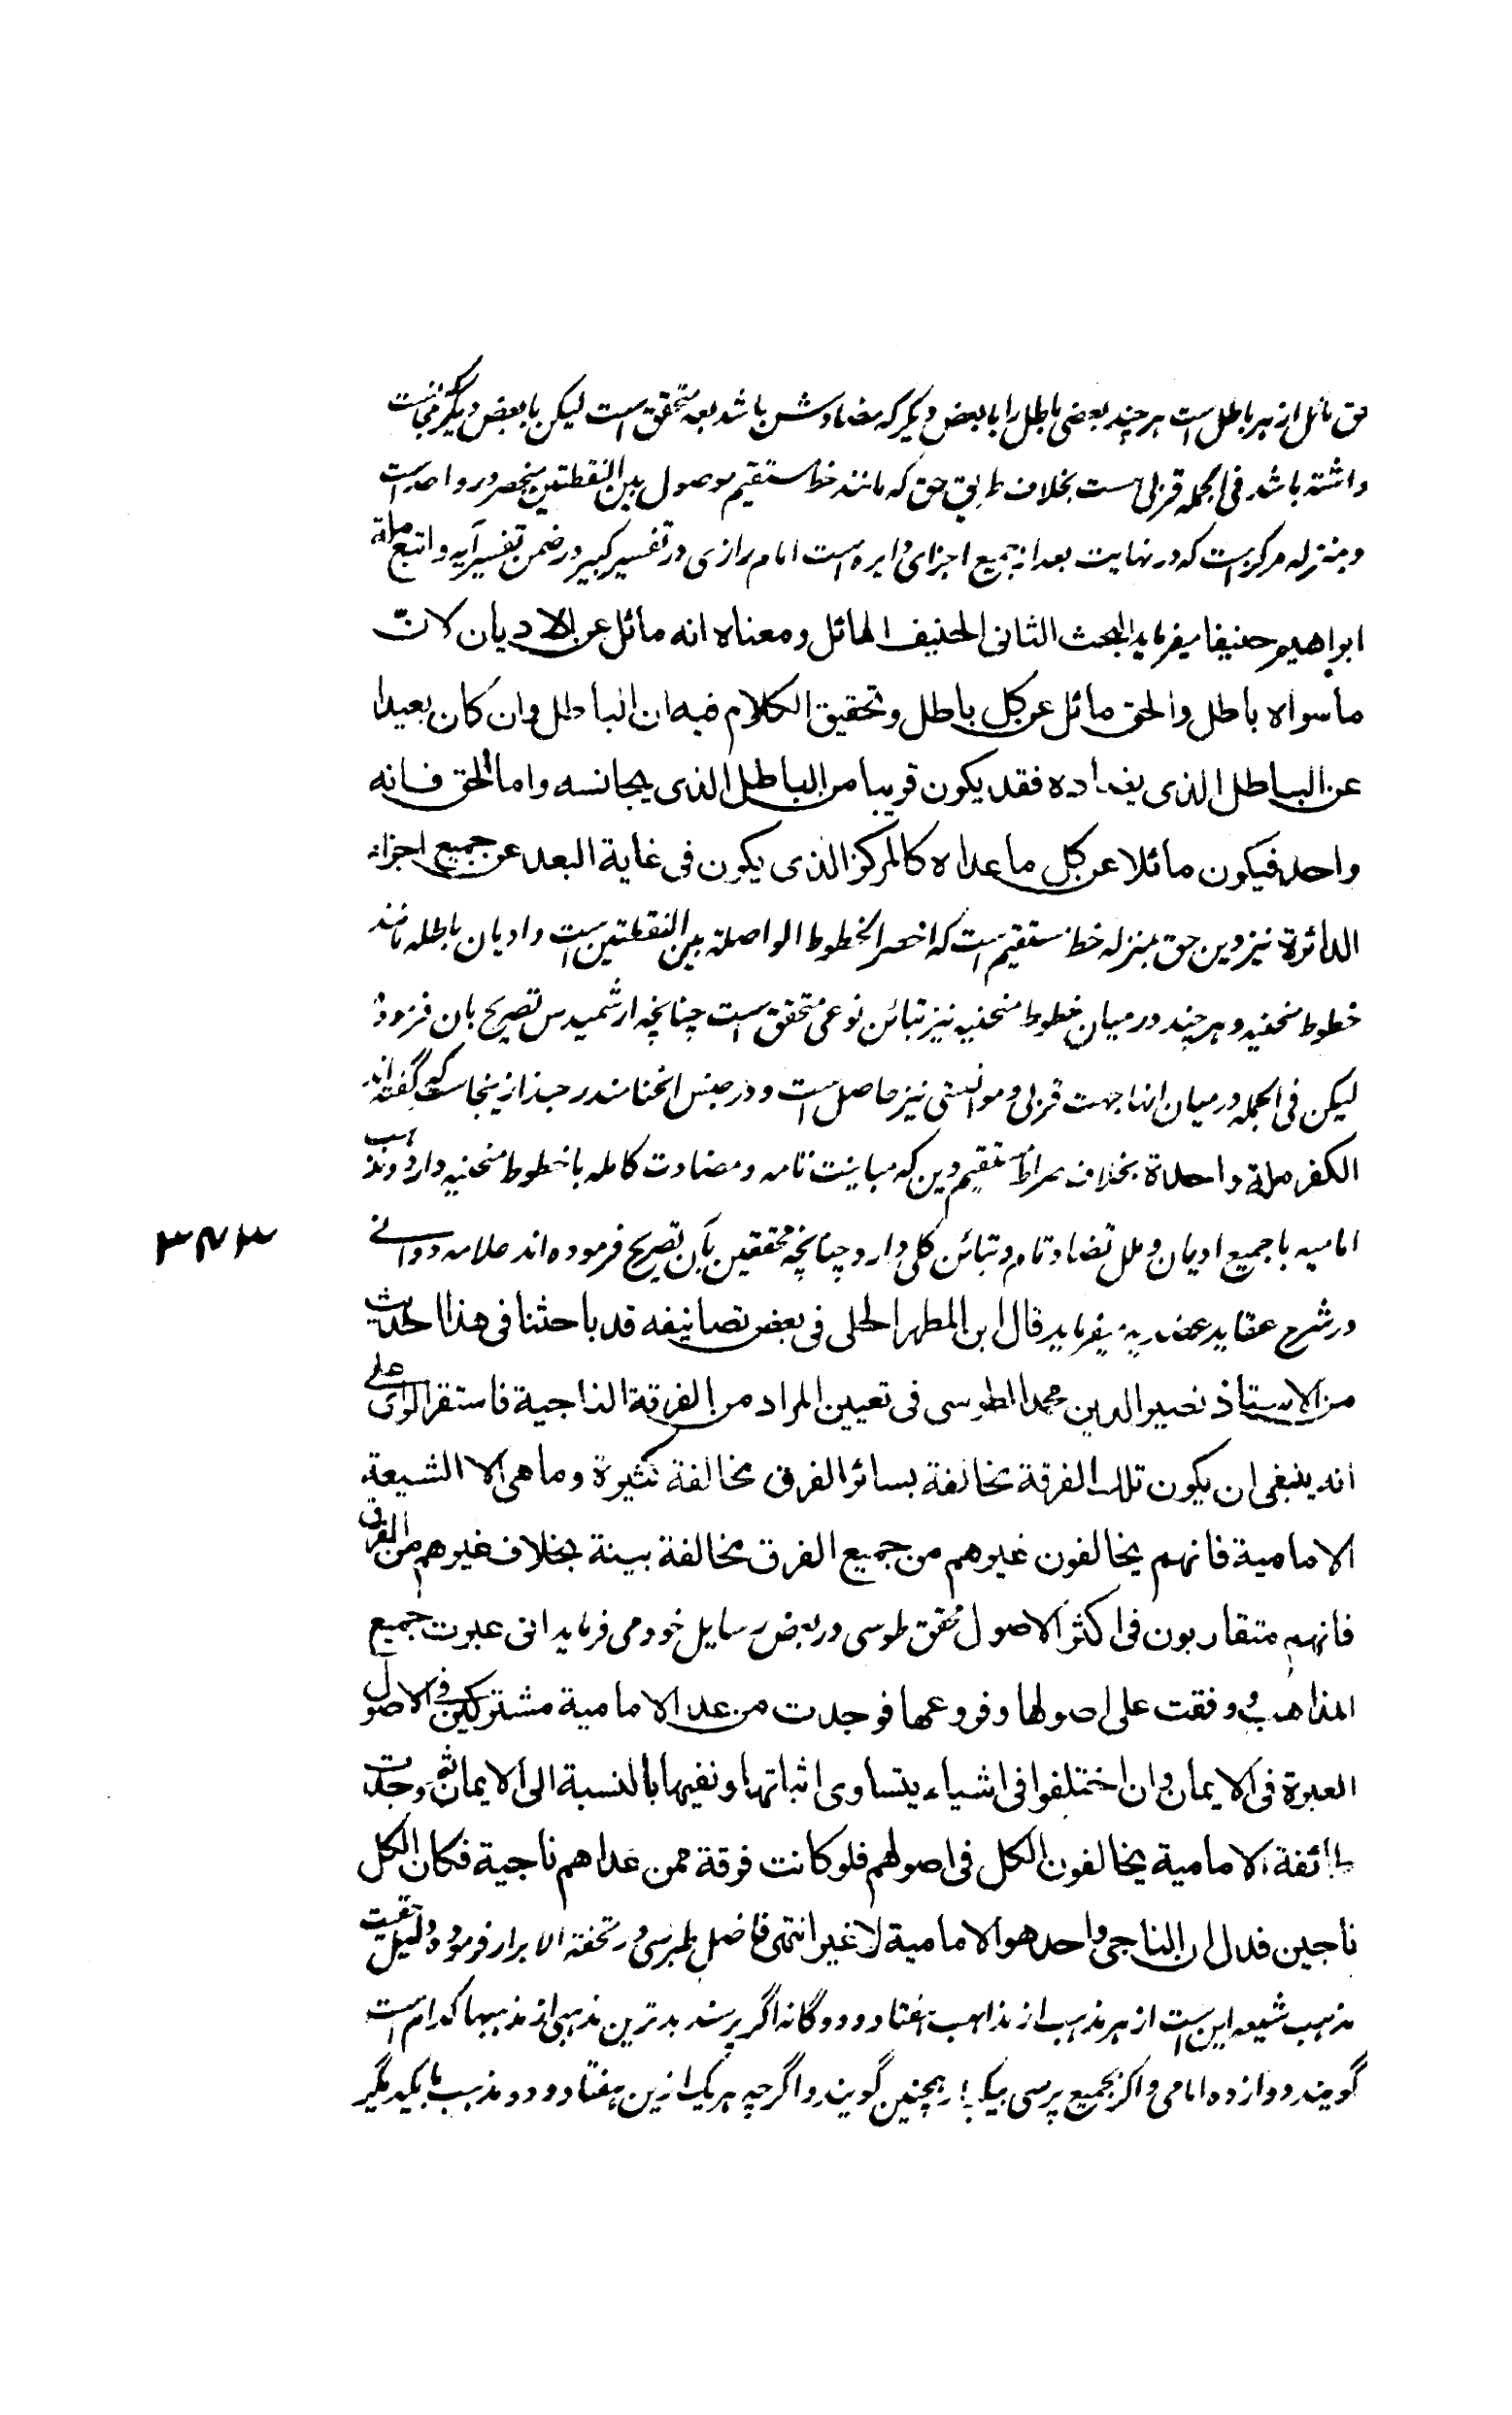 حق مائل از هر باطل است هر چند بعضی باطل را با بعض دیگر که مضادش باشد بعد متحقق است لیکن با بعض دیگر که مجانست
داشته باشد فی الجمله قربی هست بخلاف طریق حق که مانند خط مستقیم موصول بین النقطتین منحصر در واحد است
و بمنزله مرکز است که در نهایت بعد از جمیع اجزای دایره است امام رازی در تفسیر کبیر در ضمن تفسیر آیه و اتبع ملة
ابراهیم حنیفا میفرماید البحث الثانی الحنیف المائل و معناه انه مائل عن الادیان لانّ
ما سواه باطل والحق مائل عن کل باطل و تحقیق الکلام فیه ان الباطل وان کان بعیدا
عن الباطل الذی یضاده فقد یکون قریبا من الباطل الذی یجانسه واما الحق فانه
واحد فیکون مائلا عن کل ما عداه کالمرکز الذی یکون فی غایة البعد عن جمیع اجزاء
الدائرة نیز دین حق بمنزله خط مستقیم است که اخصر الخطوط الواصلة بین النقطتین است و ادیان باطله مانند
خطوط منحنیه و هر چند در میان خطوط منحنیه نیز تبائن نوعی متحقق است چنانچه ارشمیدس تصریح بان فرموده
لیکن فی الجمله در میان انها جهت قربی و موانستی نیز حاصل است و در جنس انحنا مندرجند از ینجاست که گفته اند
الکفر ملة واحدة بخلاف صراط مستقیم دین که مباینت تامه و مضادت کامله با خطوط منحنیه دارد و مذهب
امامیه با جمیع ادیان و ملل تضاد تام و تبائن کلی دارد چنانچه محققین بآن تصریح فرموده اند علامه دوانی
۳۴۳
در شرح عقاید عضدیه میفرماید قال ابن المطهر الحلی فی بعض تصانیفه قد باحثنا فی هذا الحدیث
من الاستاذ نصیر الدین محمد الطوسی فی تعیین المراد من الفرقة الناجیة فاستقر الرای علی
انه ینبغی ان یکون تلک الفرقة مخالفة بسائر الفرق مخالفة کثیرة وما هی الا الشیعة
الامامیة فانهم یخالفون غیرهم من جمیع الفرق مخالفة بینة بخلاف غیرهم من الفرق
فانهم متقاربون فی اکثر الاصول محقق طوسی در بعض رسایل خود می فرماید انی عبرت جمیع
المذاهب و وقفت علی اصولها وفروعها فوجدت من عدا الامامیة مشترکین فی الاصول
العبرة فی الایمان وان اختلفوا فی اشیاء یتساوی اثباتها ونفیها بالنسبة الی الایمان ثم وجدت
طائفة الامامیة یخالفون الکل فی اصولهم فلو کانت فرقة ممن عداهم ناجیة فکان الکل
ناجین فدل ان الناجی واحد هو الامامیة لا غیر انتهی فاضل طبرسی در تحفة الابرار فرموده دلیل حقیت
مذهب شیعه این است از هر مذهب از مذاهب هفتاد و دو گانه اگر پرسند بدترین مذهبی از مذهبها کدام است
گویند دوازده امامی و اکر بجمیع پرسی بیکبار همچنین گویند و اگر چه هر یک ازین هفتاد و دو مذهب با یکدیگر